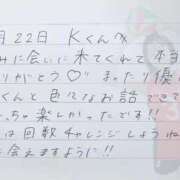 月22日 Kくんへ
みに会いに来てくれて本当
りがとう♡ まったり優
くんと色々なお話できて
っちゃ楽しかったです!!
は回数チャレンジしようね
に会えますように!!